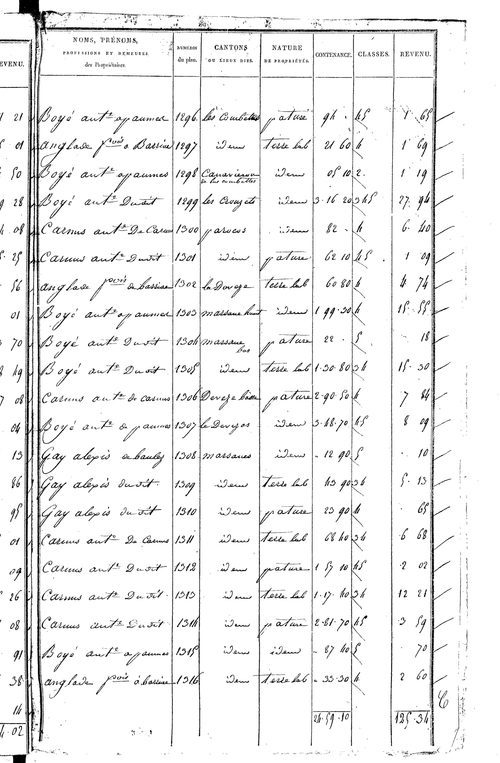 EVENU.
NOMS, PRÉNOMS, PROFESSIONS ET DEMEURES des Propriétaires. NUMÉROS du plan. CANTONS OU LIEUX DITS. NATURE DE PROPRIÉTÉS. CONTENANCE. CLASSES. REVENU.
21 Boyé ant.e a paumes 1296 les combettes pature 94 . 45 1 65
01 anglade frois a Barrine 1297 idem terre lab 21 60 4 1 69
50 Boyé ant.e a paumes 1298 idem 05 10 2. 1 19
de les combettes
28 Boyé ant.e Dudit 1299 les Crouzets idem 3 . 16 20 345 27 . 94
08 Carnus ant.e De Carnus 1300 parrocos idem 82 . 4 6 . 40
25 Carnus ant.e Dudit 1301 idem pature 62 10 45 1 09
56 anglade frois de barrine 1302 la Deveze terre lab 60 80 4 4 74
01 Boyé ant.e a paumes 1303 massane haut idem 1 99 . 30 4 15 . 55
70 Boyé ant.e Dudit 1304 massane bas pature 22 . 5 18
49 Boyé ant.e Dudit 1305 idem terre lab 1 . 30 . 80 34 15 . 30
08 Carnus ant.e de carnus 1306 Deveze basse pature 2 . 90 . 50 4 7 84
04 Boyé ant.e a paumes 1307 la Devezes idem 3 . 48 . 70 45 8 09
13 Gay alexis de bouley 1308 massanes idem 12 90 5 . 10
86 Gay alexis dudit 1309 idem terre lab 43 90 34 5 . 13
95 Gay alexis dudit 1310 idem pature 23 90 4 65
01 Carnus ant.e De Carnus 1311 idem terre lab 68 40 34 6 68
09 Carnus ant.e Dudit 1312 idem pature 1 57 10 45 2 02
26 Carnus ant.e Dudit 1313 idem terre lab 1 . 17 . 40 34 12 21
08 Carnus ant.e Dudit 1314 idem pature 2 . 81 . 70 45 3 59
91 Boyé ant.e a paumes 1315 idem idem 87 40 5 . 70
38 anglade frois à barrine 1316 idem terre lab 33 . 30 4 2 60
14
4 . 02 24 . 59 . 10 125 . 34